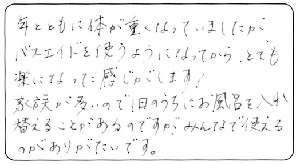 年とともに体が重くなっていましたが
バスエイドを使うようになってから、とても
楽になった感じがします!
家族が多いので1日のうちにお風呂を入れ
替えることがあるのですが、みんなで使える
のがありがたいです。